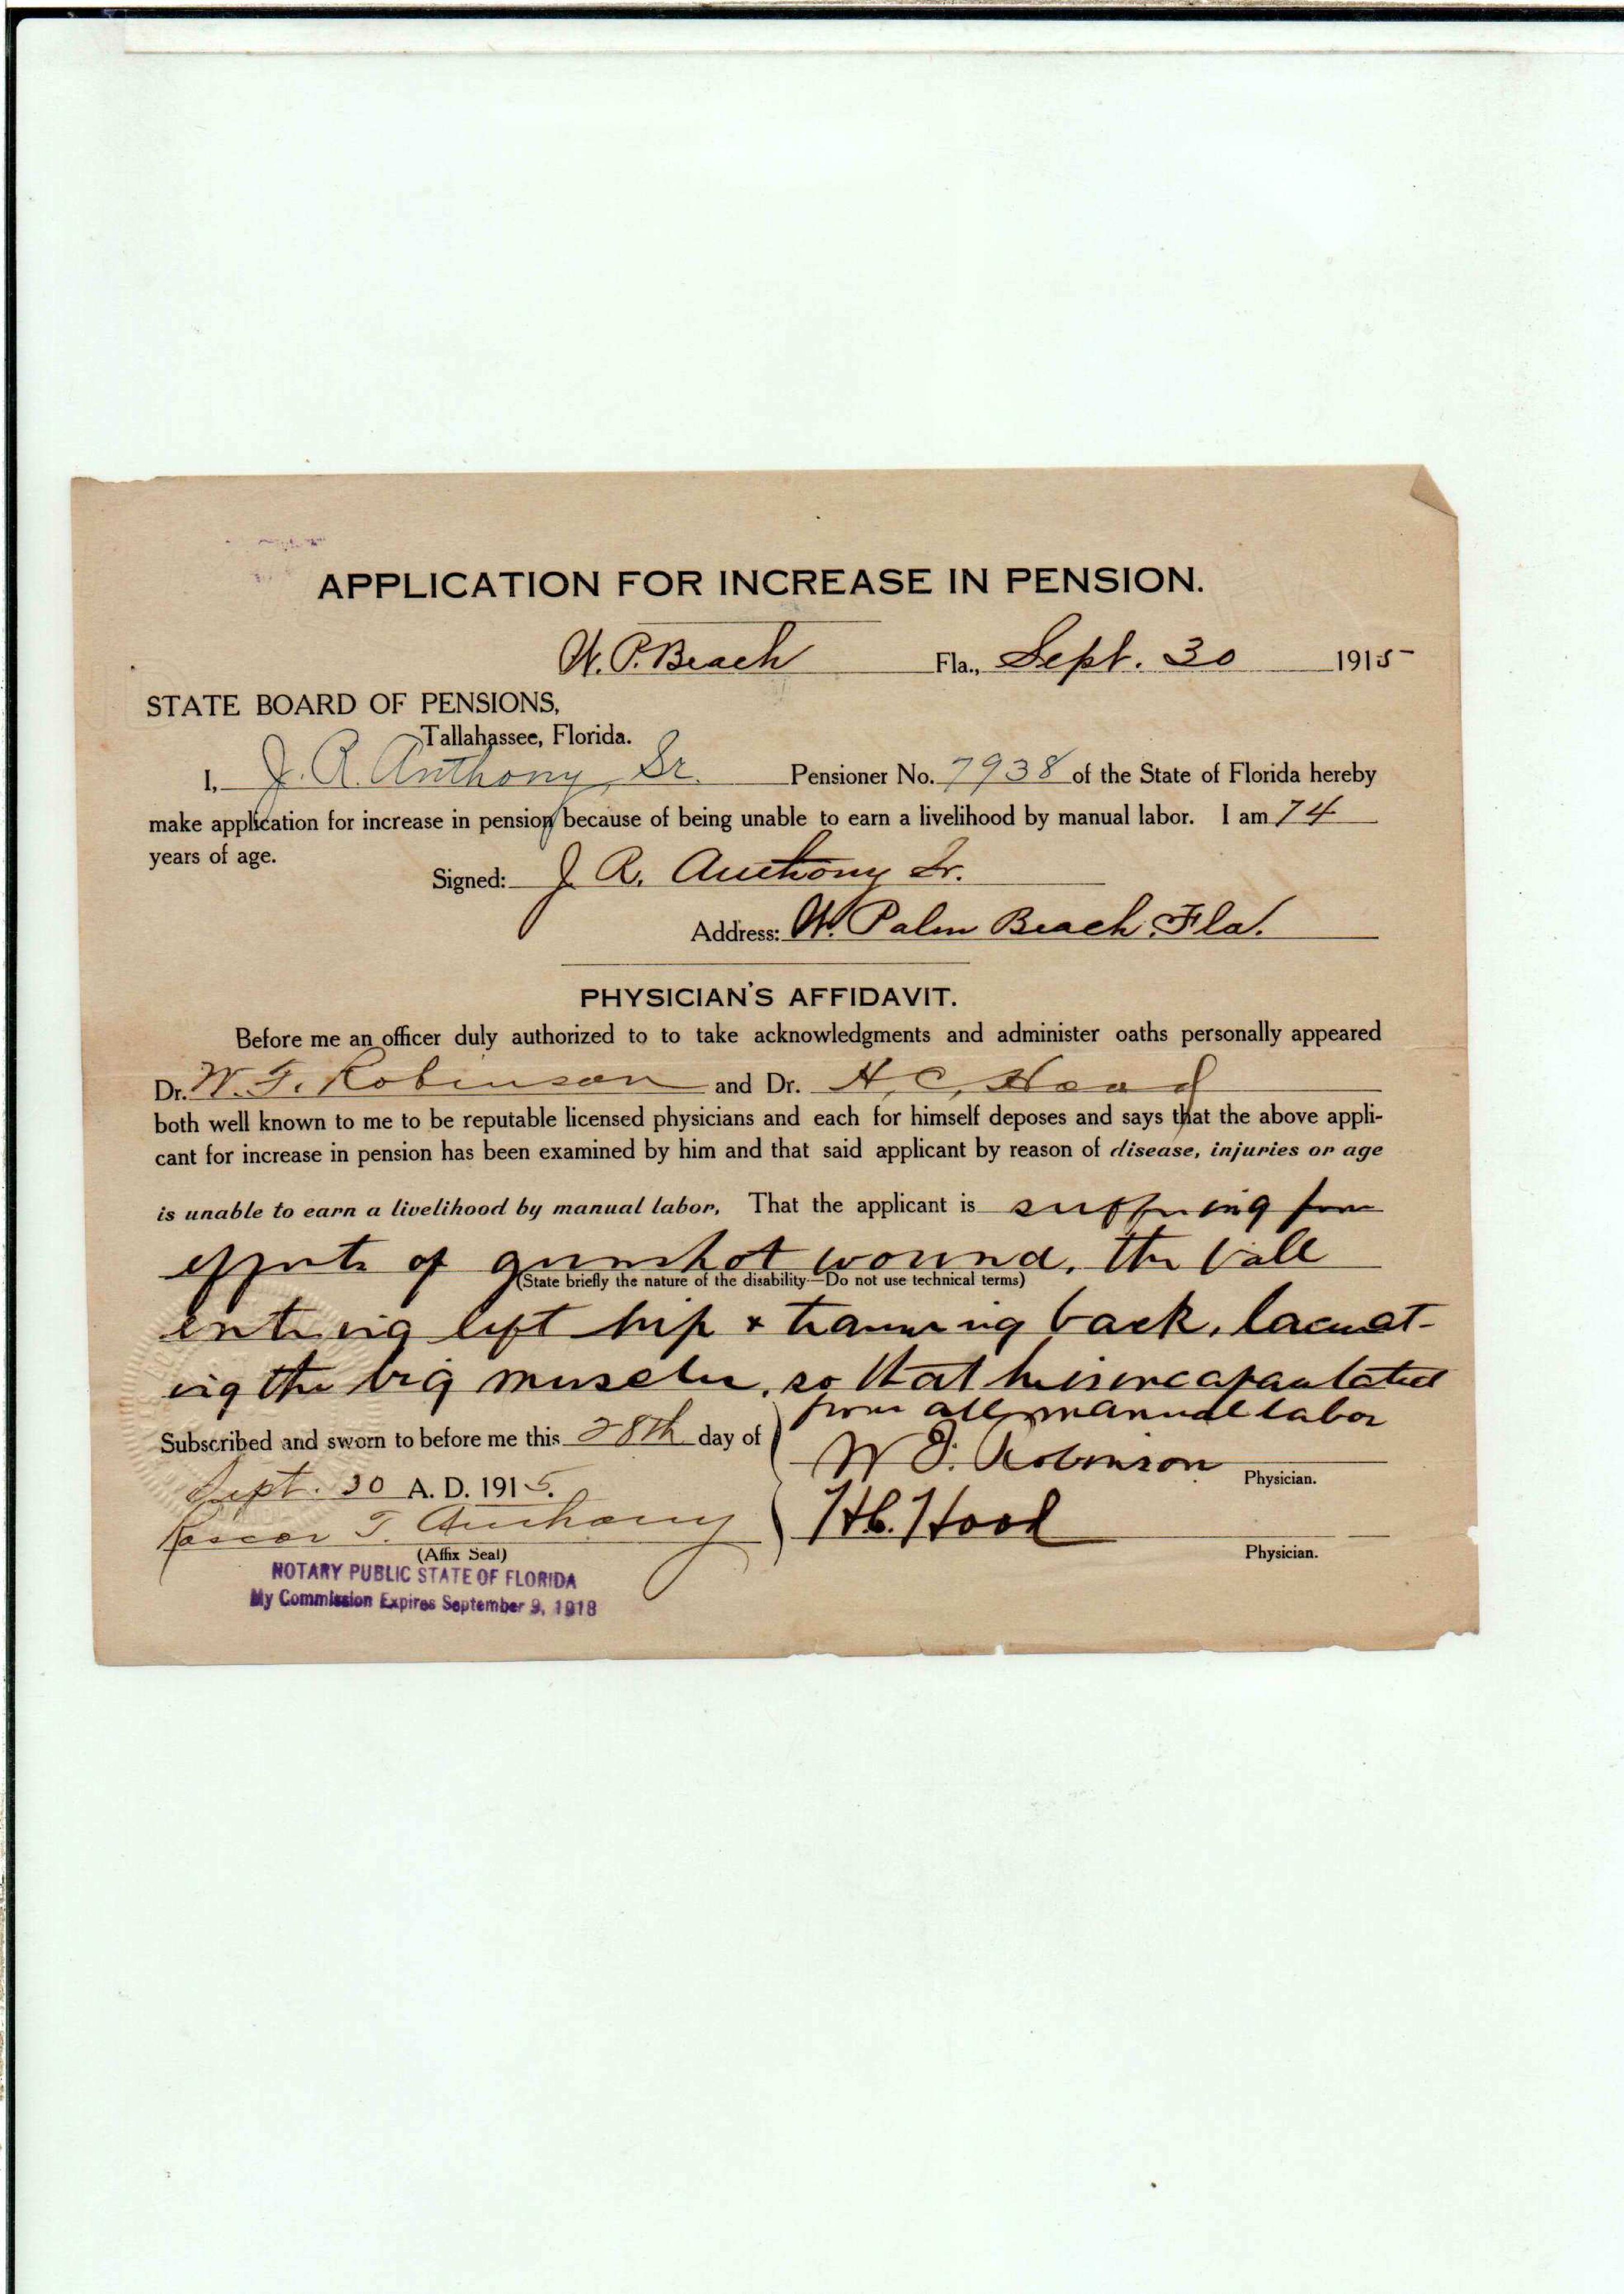 APPLICATION FOR INCREASE IN PENSION.
W. P. Beach Fla., Sept. 30 1915
STATE BOARD OF PENSIONS,
Tallahassee, Florida.
I, J. R. Anthony, Sr. Pensioner No. 7938 of the State of Florida hereby
make application for increase in pension because of being unable to earn a livelihood by manual labor. I am 74
years of age.
Signed: J. R. Anthony Sr.
Address: W. Palm Beach, Fla.
PHYSICIAN'S AFFIDAVIT.
Before me an officer duly authorized to to take acknowledgments and administer oaths personally appeared
Dr. W. F. Robinson and Dr. H. C. Hood
both well known to me to be reputable licensed physicians and each for himself deposes and says that the above appli-
cant for increase in pension has been examined by him and that said applicant by reason of disease, injuries or age
is unable to earn a livelihood by manual labor. That the applicant is suffering from
effects of gunshot wound, the ball
(State briefly the nature of the disability—Do not use technical terms)
entering left hip & traversing back, lacerat-
ing the big muscles, so that he is incapacitated
from all manual labor
Subscribed and sworn to before me this 28th day of
W. F. Robinson Physician.
Sept. 30 A. D. 1915.
H C. Hood
T Anthony
(Affix Seal) Physician.
NOTARY PUBLIC STATE OF FLORIDA
My Commission Expires September 9, 1918